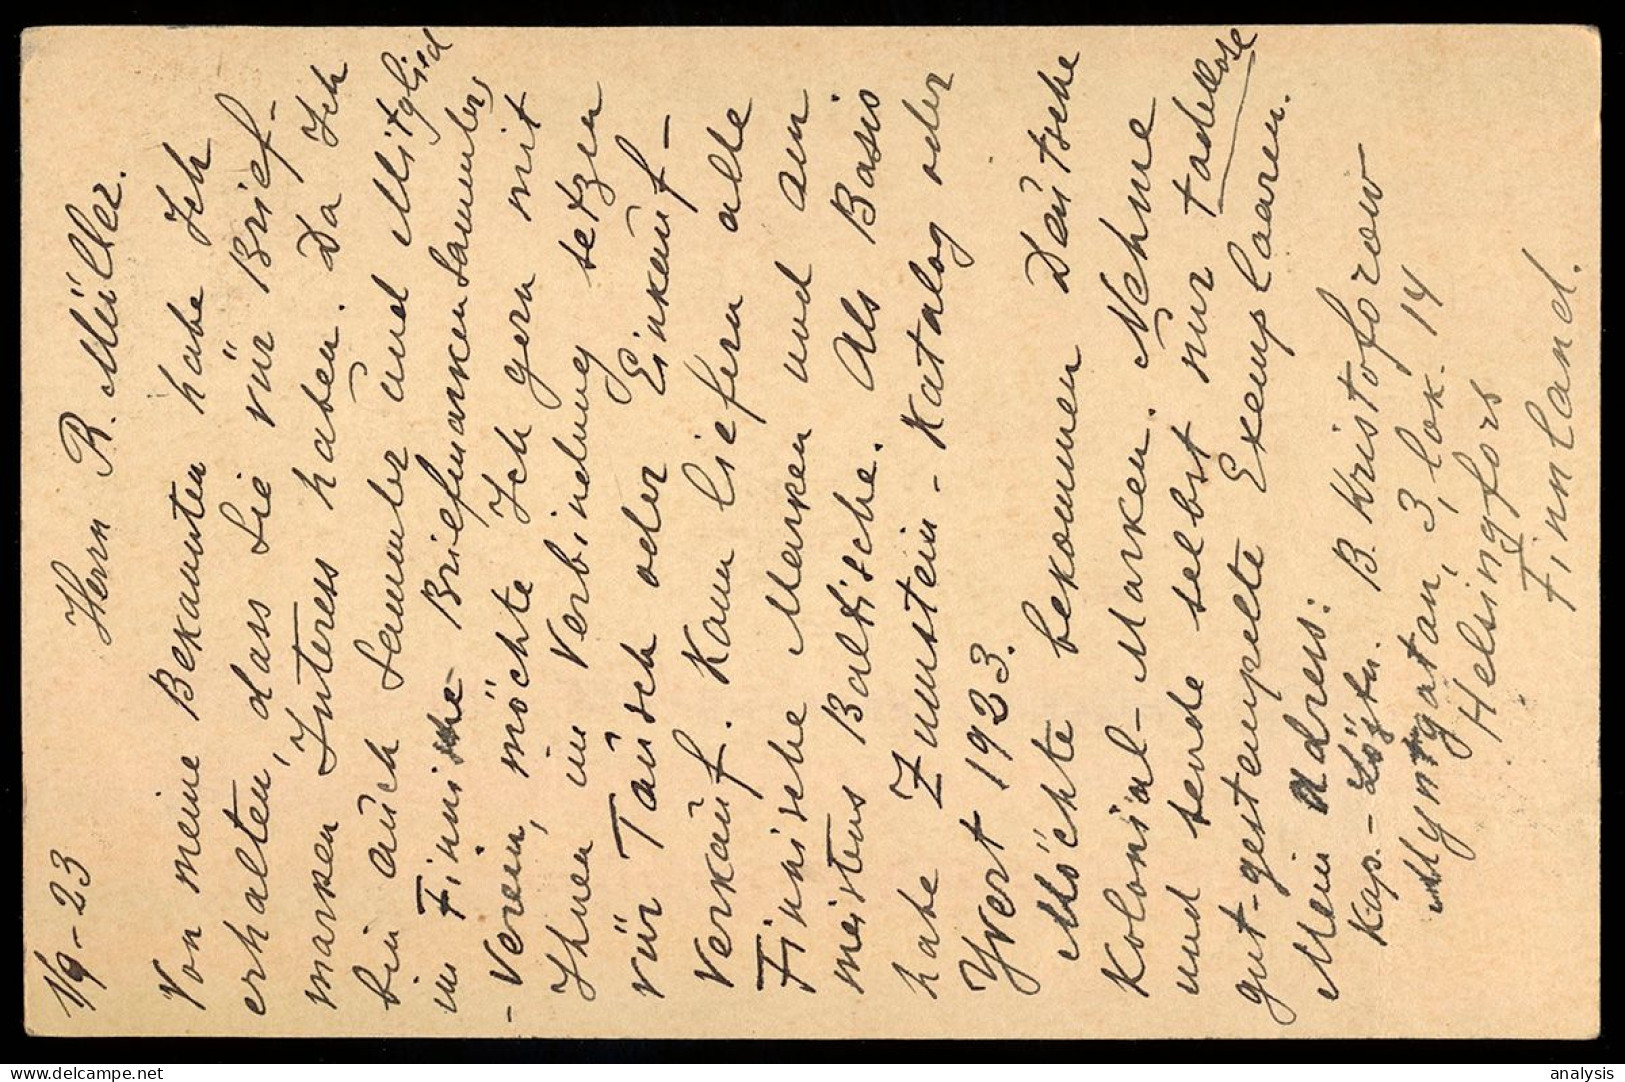 1/9-23
Herrn R. Müller.
Von meine Bekannten habe Ich
erhalten, dass Sie vür Brief-
marken Interess haben. Da Ich
bin aúch Sammler und Mitglied
in Finnische Briefmarkensammler,
-Verein, möchte Ich gern mit
Ihnen in Verbindung setzen
vür Taúsch oder Einkaúf-
Verkaúf. Kann liefern alle
Finnische Marken und am
meistens Baltische. Als Basis
habe Zumstein-Katalog oder
Yvert 1923.
Möchte bekommen Deútsche
Kolonial-Marken. Nehme
und sende selbst nur tadellose
gut-gestempelte Exemplaaren.
Mein Adress:
Kap.- B. Kristoforow
Myntgatan, 3, lok. 14
Helsingfors
Finnland.
delcampe.net
analysis